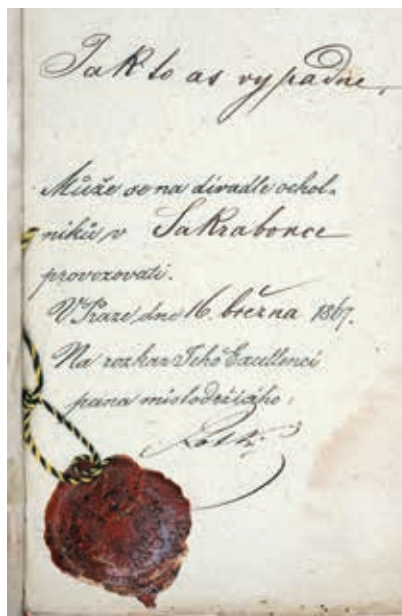 Jak to as vypadne.
Může se na divadle ochot-
níků v Sakrabonce
provozovati.
V Praze dne 16. března 1867.
Na rozkaz Jeho Excellencí
pana místodržícího: